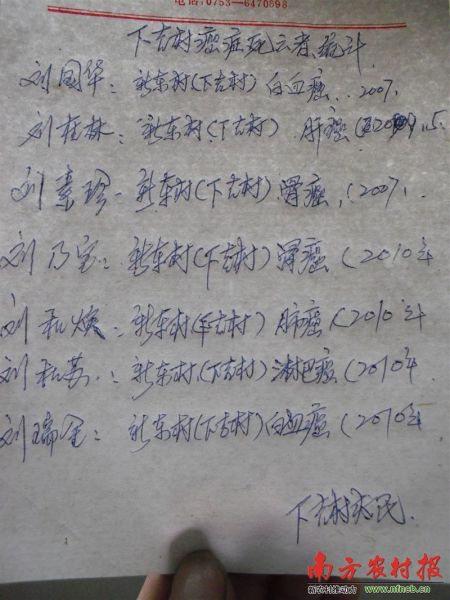 电话:0753-6470898
下古村癌症死亡者统计
刘国华:新东村(下古村)白血癌..2007.
刘桂林:新东村(下古村)肝癌
刘素珍-新东村(下古村)骨癌,(2007.
刘乃宝:新东村(下古村)胃癌(2010年
刘和焕:新东村(下古村)肺癌(2010年
刘和芬:新东村(下古村)淋巴癌(2010年
刘瑞金:新东村(下古村)白血癌(2010年
下古村村民.
南方农村报
新农村推动力 www.nfncb.cn